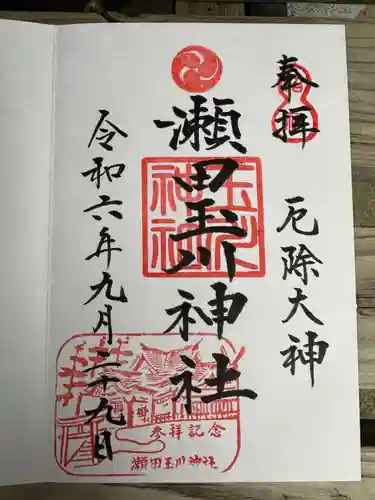 奉拝
厄除大神
瀬田玉川神社
玉川神社
令和六年九月二十九日
参拝記念
瀬田玉川神社